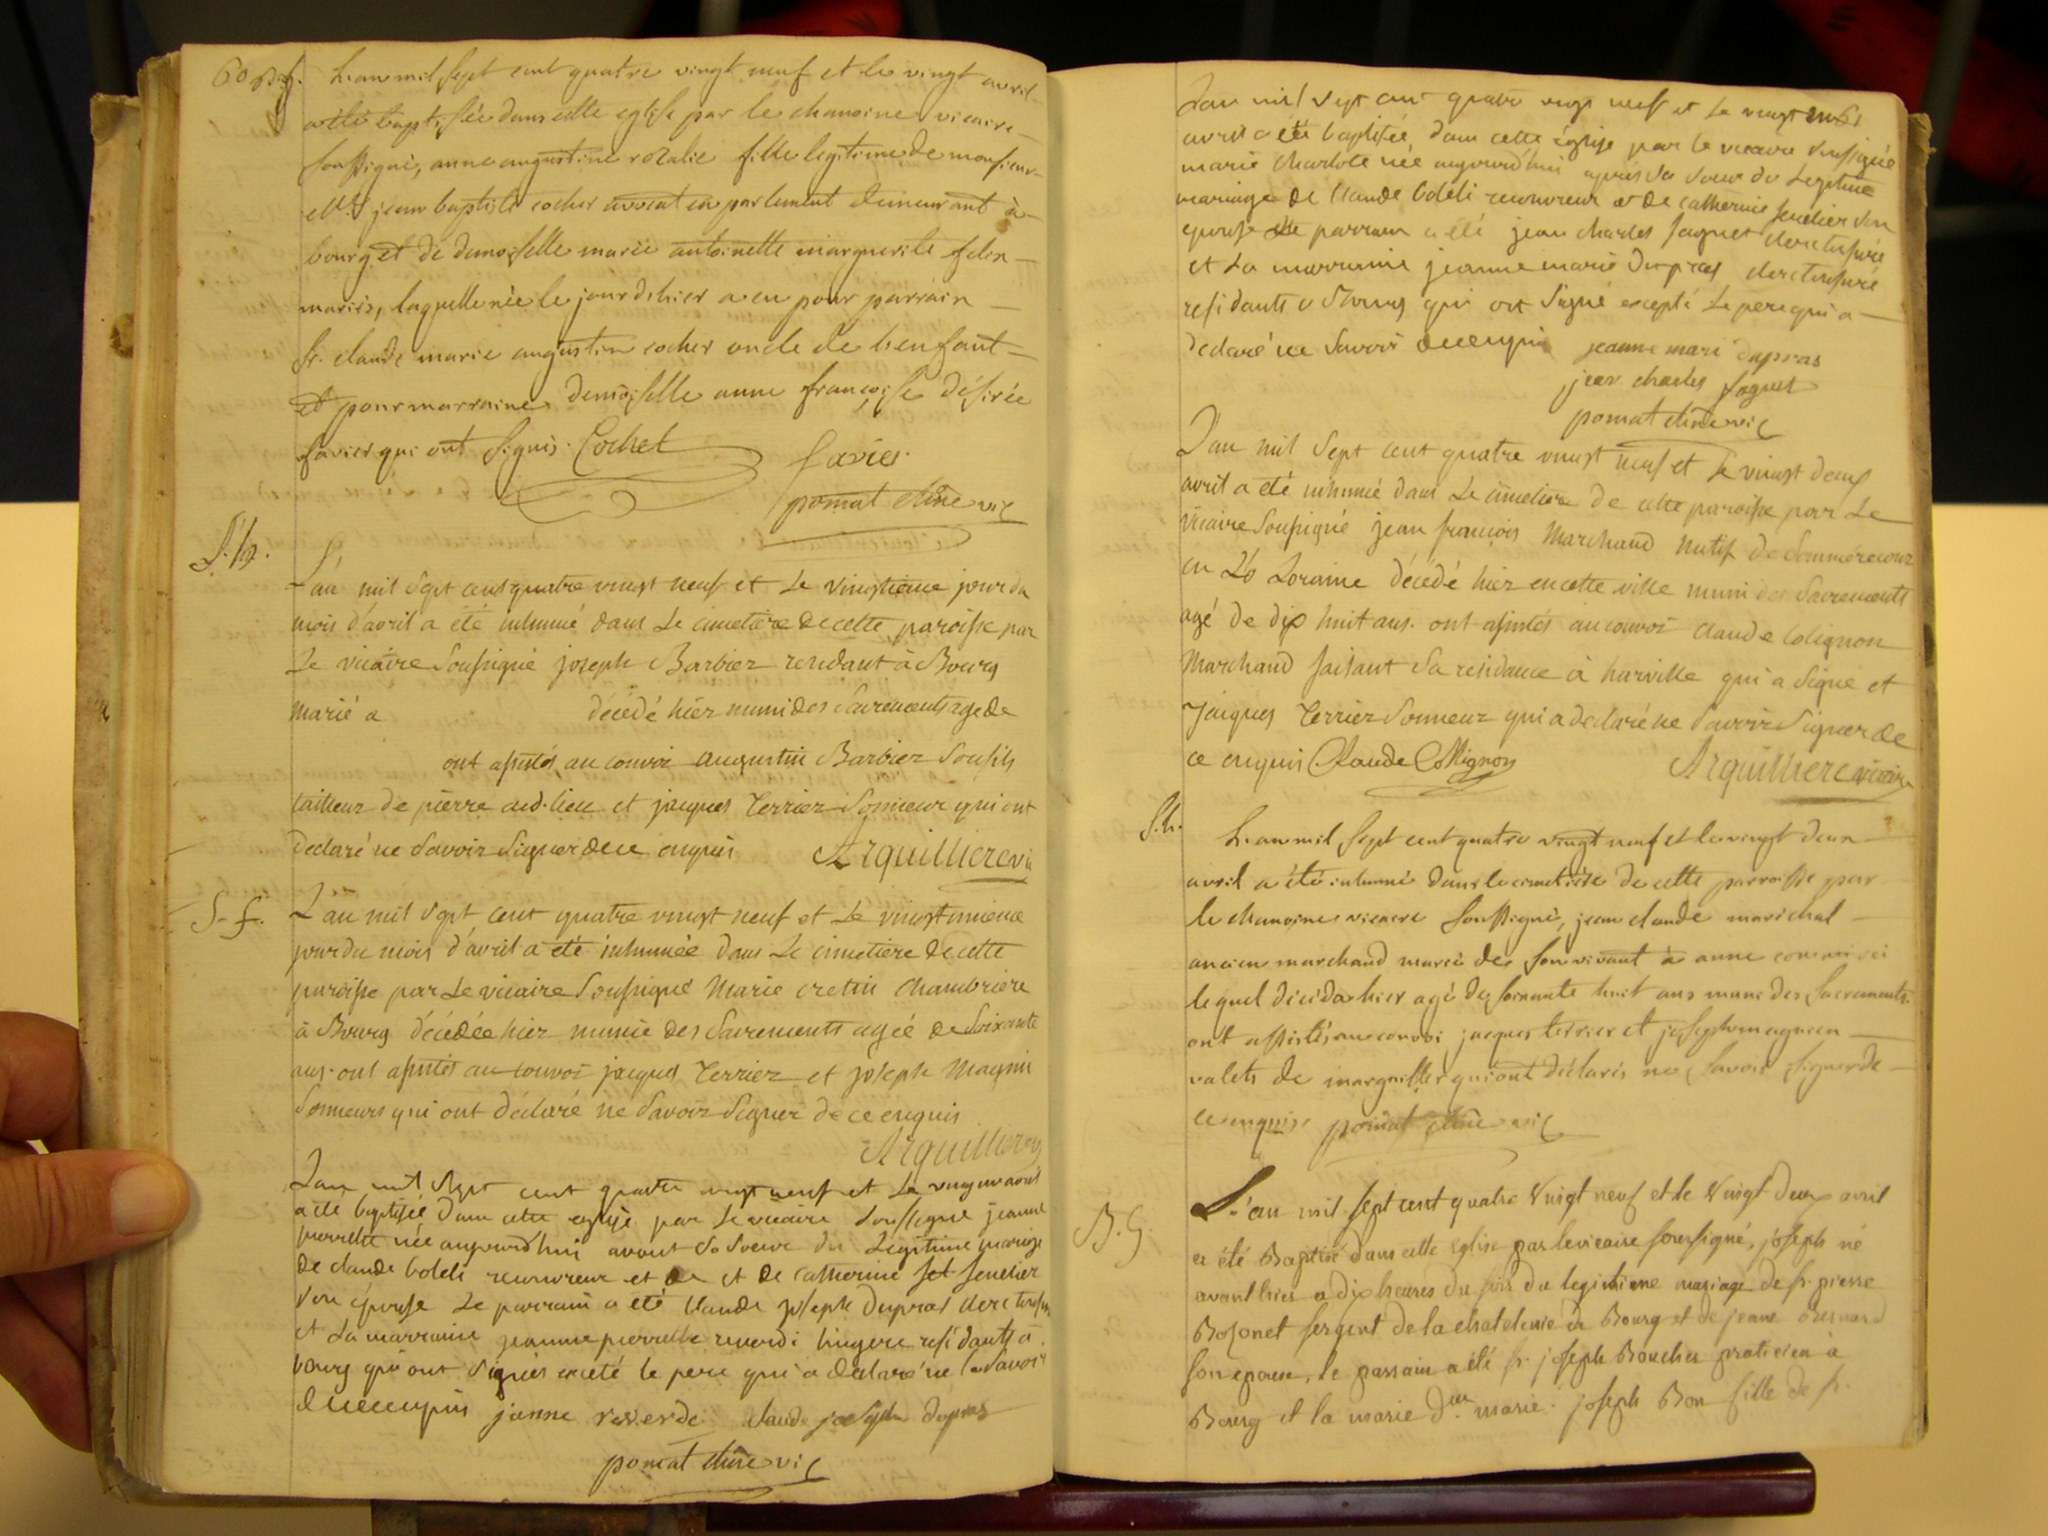 60 B.f.
L'an mil sept cent quatre vingt neuf et le vingt avril
a été baptisée dans cette eglise par le chanoine vicaire
soussigné, anne augustine rozalie fille legitime de monsieur
jean baptiste cochet avocat en parlement demeurant à
bourg et de demoiselle marie antoinette marguerite
mariés, laquelle née le jour d'hier a eu pour parrain
Sr. claude marie augustin cochet oncle de l'enfant
et pour marraine demoiselle anne françoise désirée
favier qui ont signés. Cochet
favier
pomat chne vic
S.h.
L'an mil sept cent quatre vingt neuf et le vingtieme jour du
mois d'avril a été inhumé dans le cimetiere de cette paroisse par
le vicaire soussigné joseph Barbier residant à Bourg
marié a décédé hier muni des sacrements agé de
ont assistés au convoi augustin Barbier son fils
tailleur de pierre aud. lieu et jacques Terrier sonneur qui ont
declaré ne savoir signer de ce enquis Arquilliere vic
S-f.
L'an mil sept cent quatre vingt neuf et le vingt unieme
jour du mois d'avril a été inhumée dans le cimetiere de cette
paroisse par le vicaire soussigné Marie cretin chambriere
à Bourg décédée hier munie des sacrements agée de soixante
ans. ont assistés au convoi jacques Terrier et joseph Magnin
sonneurs qui ont déclaré ne savoir signer de ce enquis
Arquilliere v
L'an mil sept cent quatre vingt neuf et le vingt un avril
a été baptisée dans cette eglise par le vicaire soussigné jeanne
pierrette née aujourd'hui avant sa soeur du legitime mariage
de claude boleli recouvreur et de et de catherine
son epouse le parrain a été claude joseph dupras clerc tonsuré
et la marraine jeanne pierrette reverdi lingere residants à
bourg qui ont signés exceté le pere qui a declaré ne le savoir
de ce enquis janne reverdi claude joseph dupras
pomat chne vic
L'an mil sept cent quatre vingt neuf et le vingt un 61
avril a été baptisée dans cette église par le vicaire soussigné
marie charlote née aujourd'hui aprés sa soeur du legitime
mariage de claude boleli recouvreur et de catherine son
epouse le parrain a été jean charles faguet clerc tonsuré
et la marraine jeanne marie dupras clerc tonsuré
residants a Bourg qui ont signé excepté le pere qui a
declaré ne savoir de ce enquis jeanne mari dupras
jean charles faguet
pomat chne vic
L'an mil sept cent quatre vingt neuf et le vingt deux
avril a été inhumé dans le cimetiere de cette paroisse par le
vicaire soussigné jean françois Marchand natif de Sommerecour
en Loraine décédé hier en cette ville muni des sacrements
agé de dix huit ans. ont assistés au convoi claude Colignon
Marchand faisant sa residance à harville qui a signé et
jacques Terrier sonneur qui a declaré ne savoir signer de
ce enquis Claude Collignon Arquilliere vicaire
S.h.
L'an mil sept cent quatre vingt neuf et le vingt deux
avril a été inhumé dans le cimetiére de cette parroisse par
le chanoine vicaire soussigné, jean claude marichal
ancien marchand marié de son vivant à anne
lequel décéda hier agé de soixante huit ans muni des sacrements
ont assistés au convoi jacques terrier et joseph magnien
valets de marguillier qui ont déclarés ne savoir signer de
ce enquis pomat chne vic
B.G.
L'an mil sept cent quatre vingt neuf et le vingt deux avril
a été Baptisé dans cette eglise par le vicaire soussigné, joseph né
avant hier a dix heures du soir du legitime mariage de sr. pierre
Bozonet sergent de la chatelenie de Bourg et de jeane Besnard
son epouse, le parrain a été sr. joseph Boucher praticien à
Bourg et la marie dlle. marie joseph Bon fille de sr.